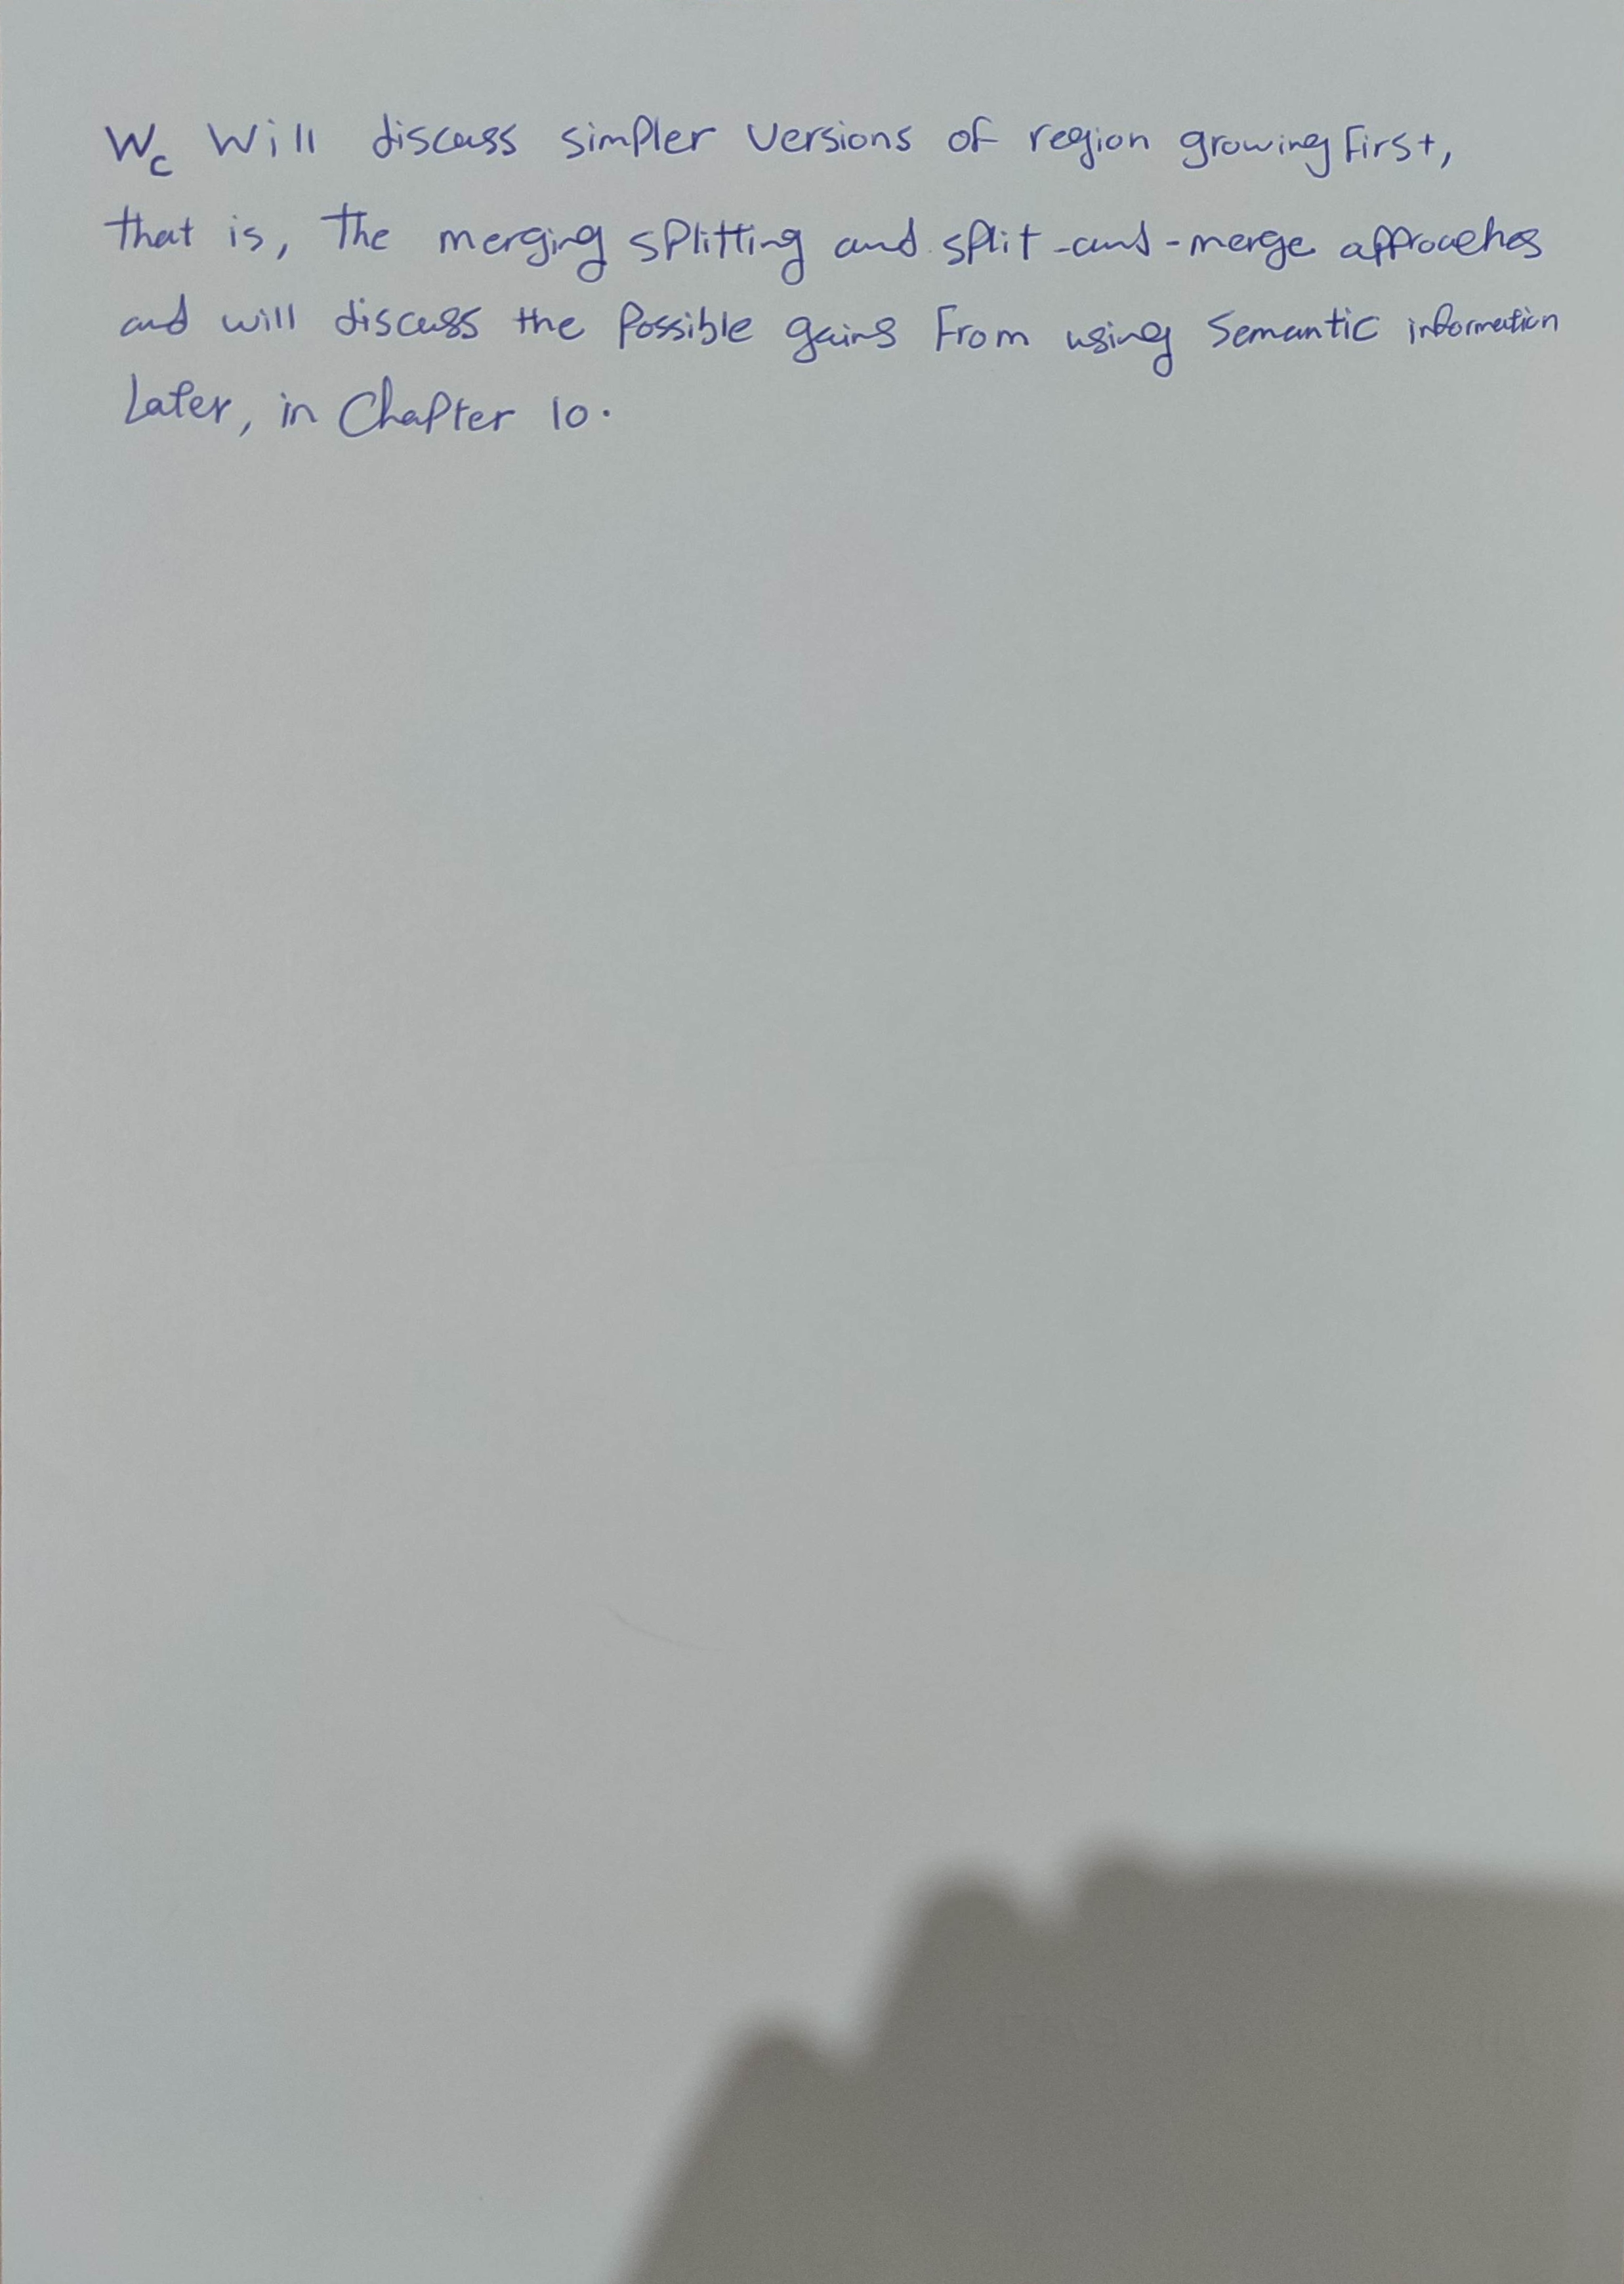 We will discuss simpler versions of region growing first,
that is, the merging splitting and split-and-merge approaches
and will discuss the possible gains from using semantic information
Later, in Chapter 10.